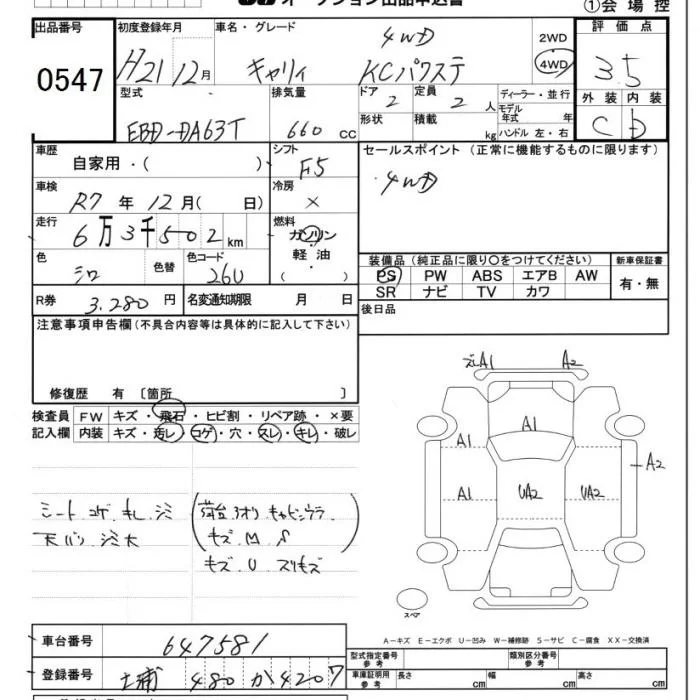 オークション出品申込書 ①会場控
出品番号 初度登録年月 車名・グレード 評価点
0547 H21 12月 キャリィ 4WD KCパワステ 2WD 4WD 3.5
型式 排気量 ドア 定員 ディーラー・並行 外装 内装
EBD-DA63T 660 cc 2 2人 モデル年式 年 C D
形状 積載 kg ハンドル 左・右
車歴 シフト セールスポイント (正常に機能するものに限ります)
自家用・( ) F5
4WD
車検 冷房
R7年 12月( 日) ×
走行 燃料
6万3千502km ガソリン
軽油
( )
色 色替 色コード 装備品 (純正品に限り○をつけてください) 新車保証書
シロ 26U PS PW ABS エアB AW 有・無
SR ナビ TV カワ
R券 3,280円 名変通知期限 月 日 後日品
注意事項申告欄 (不具合内容等は具体的に記入して下さい)
修復歴 有 〔箇所 〕
検査員 FW キズ・飛石・ヒビ割・リペア跡・×要
記入欄 内装 キズ・汚レ・コゲ・穴・スレ・キレ・破レ
ズレA1 A2
A1
A1 A2
A1 UA2 UA2
シート コゲ キレ シミ
天バリ シミ大
荷台 アオリ キャビンウラ
キズ M S
キズ U スリキズ
スペア
A-キズ E-エクボ U-凹み W-補修跡 S-サビ C-腐食 XX-交換済
車台番号 647581 型式指定番号 参考 類別区分番号 参考
登録番号 土浦 480 か 4207 車庫証明用 参考 長さ cm 幅 cm 高さ cm